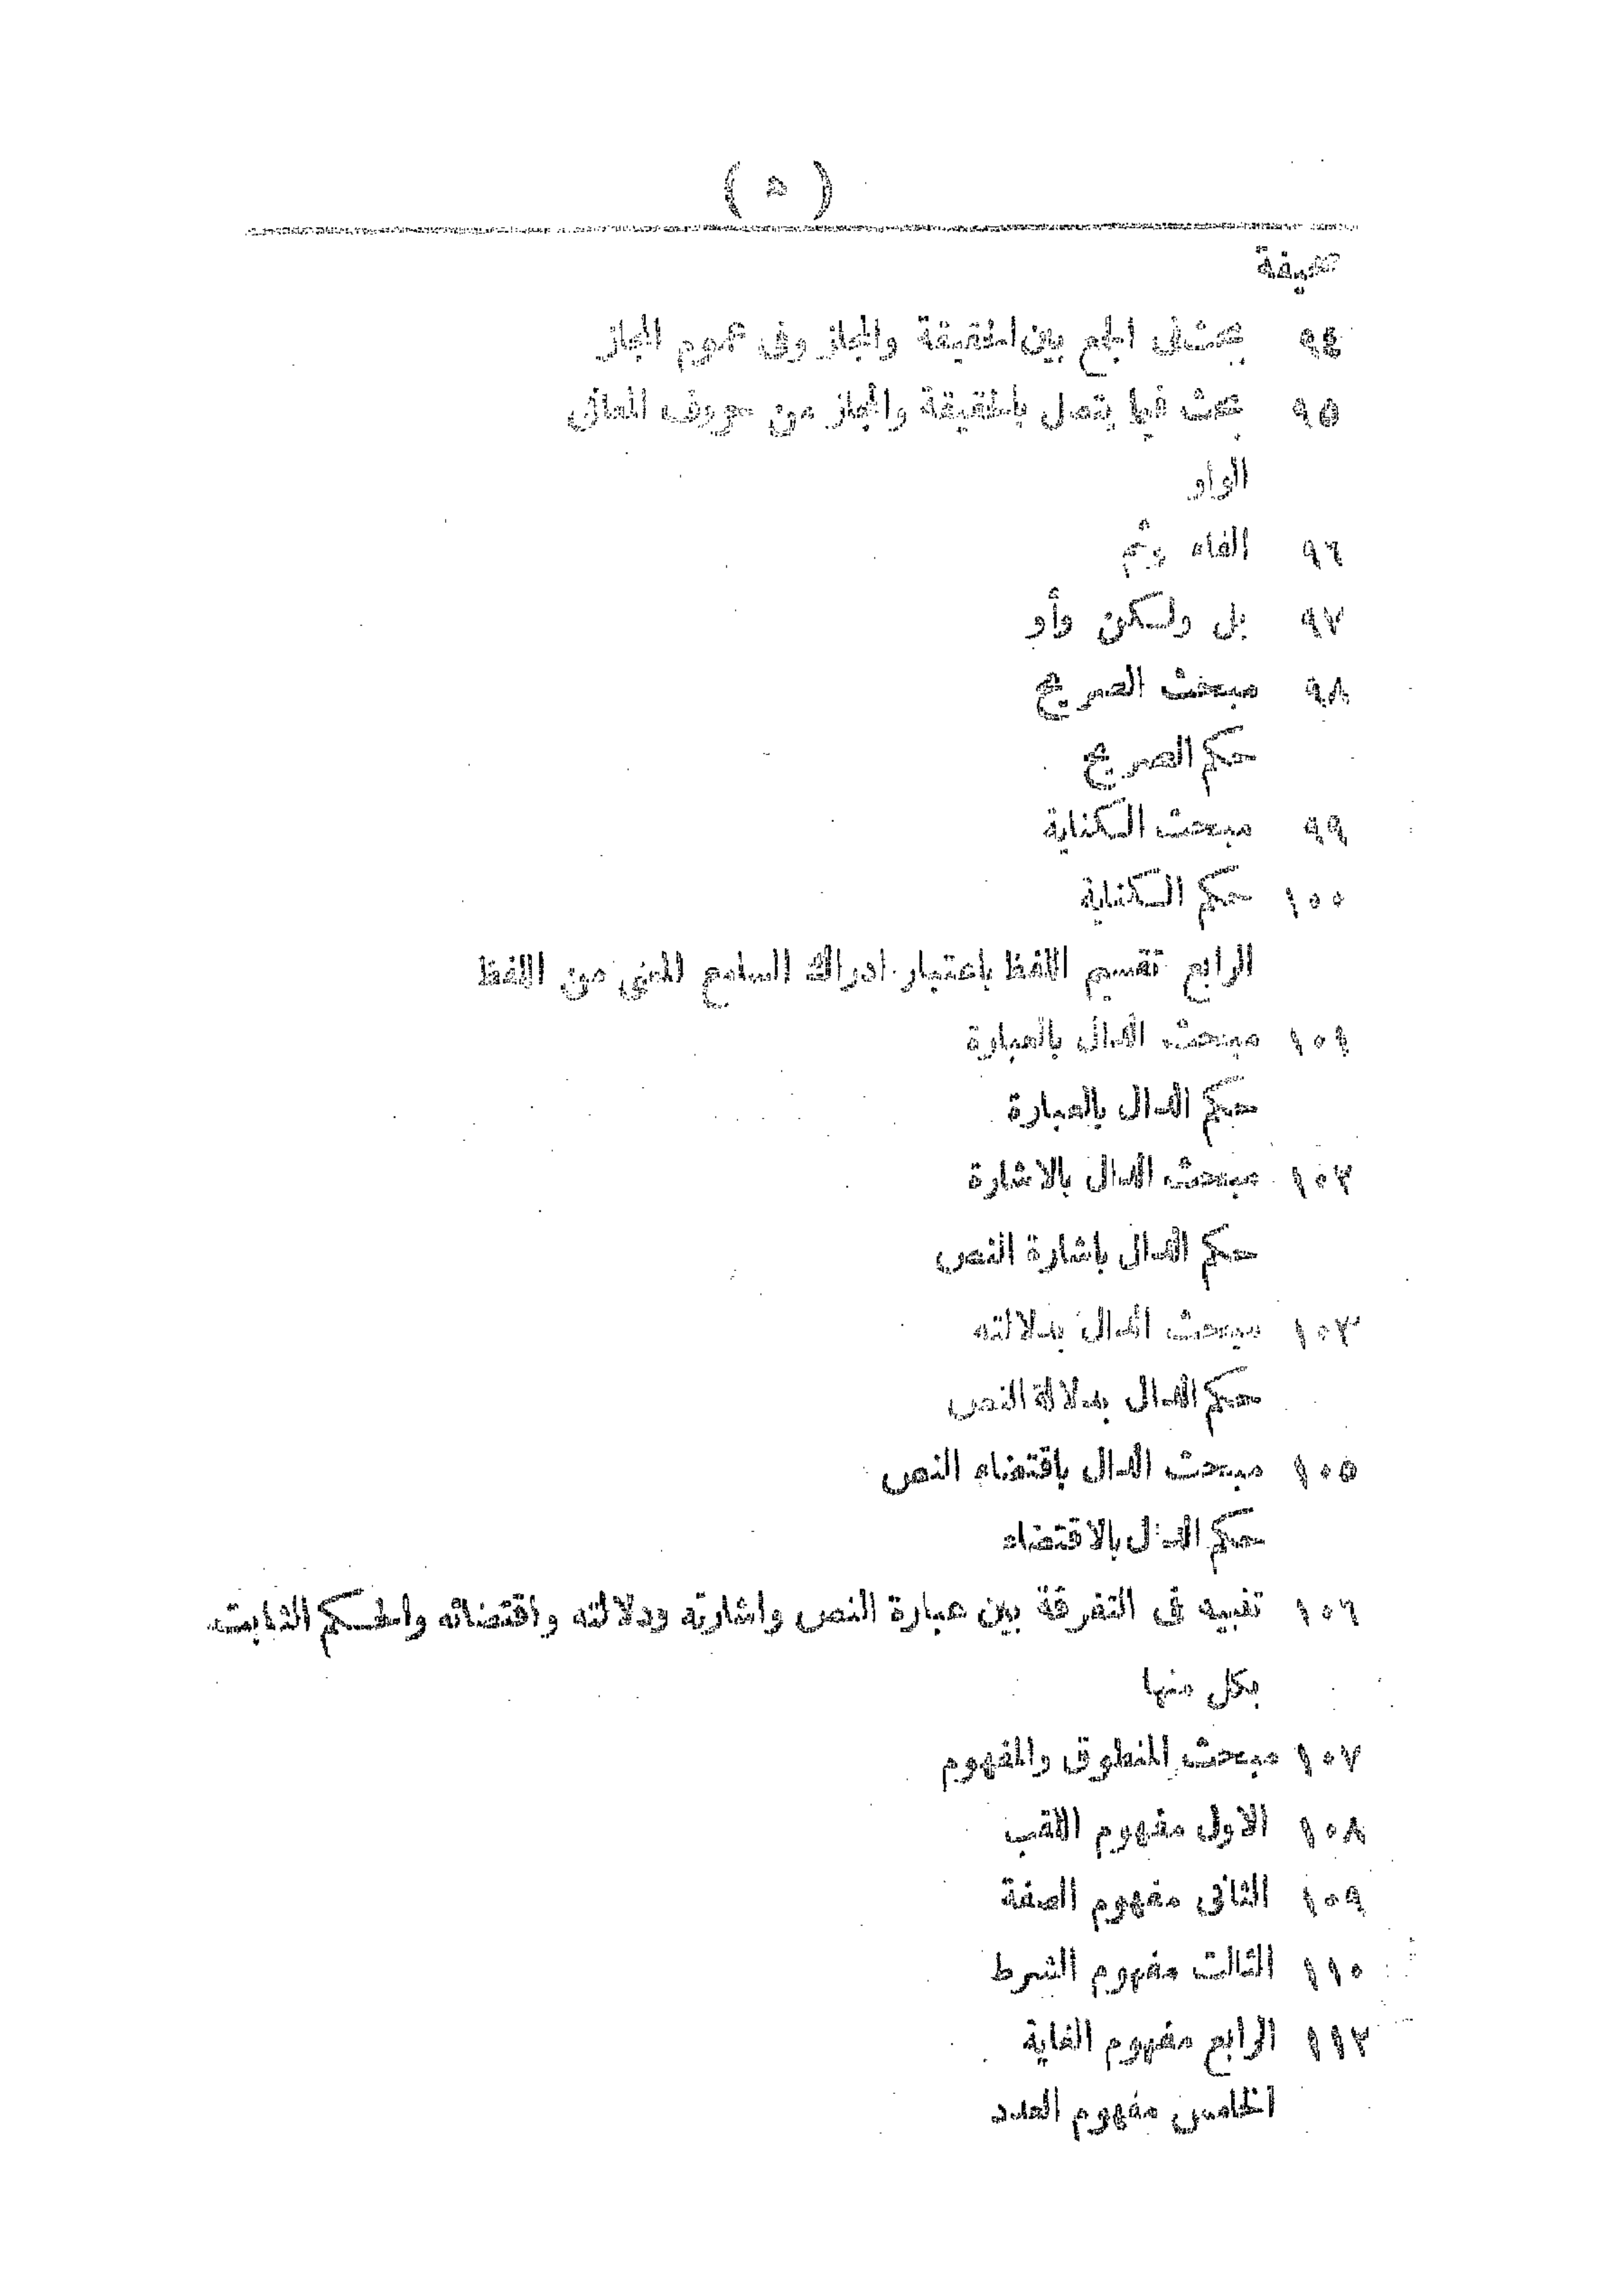 ( ه )
صحيفة
٩٤ بحث فى الجمع بين الحقيقة والمجاز وفى عموم المجاز
٩٥ بحث فيما يتصل بالحقيقة والمجاز من حروف المعانى
الواو
٩٦ الفاء وثم
٩٧ بل ولكن وأو
٩٨ مبحث الصريح
حكم الصريح
٩٩ مبحث الكناية
١٠٠ حكم الكناية
الرابع تقسيم اللفظ باعتبار ادراك السامع المعنى من اللفظ
١٠١ مبحث الدال بالعبارة
حكم الدال بالعبارة
١٠٢ مبحث الدال بالاشارة
حكم الدال باشارة النص
١٠٣ مبحث الدال بدلالته
حكم الدال بدلالة النص
١٠٥ مبحث الدال باقتضاء النص
حكم الدال بالاقتضاء
١٠٦ تنبيه فى التفرقة بين عبارة النص واشارته ودلالته واقتضائه والحكم الثابت
بكل منها
١٠٧ مبحث المنطوق والمفهوم
١٠٨ الاول مفهوم اللقب
١٠٩ الثانى مفهوم الصفة
١١٠ الثالث مفهوم الشرط
١١٢ الرابع مفهوم الغاية
الخامس مفهوم العدد